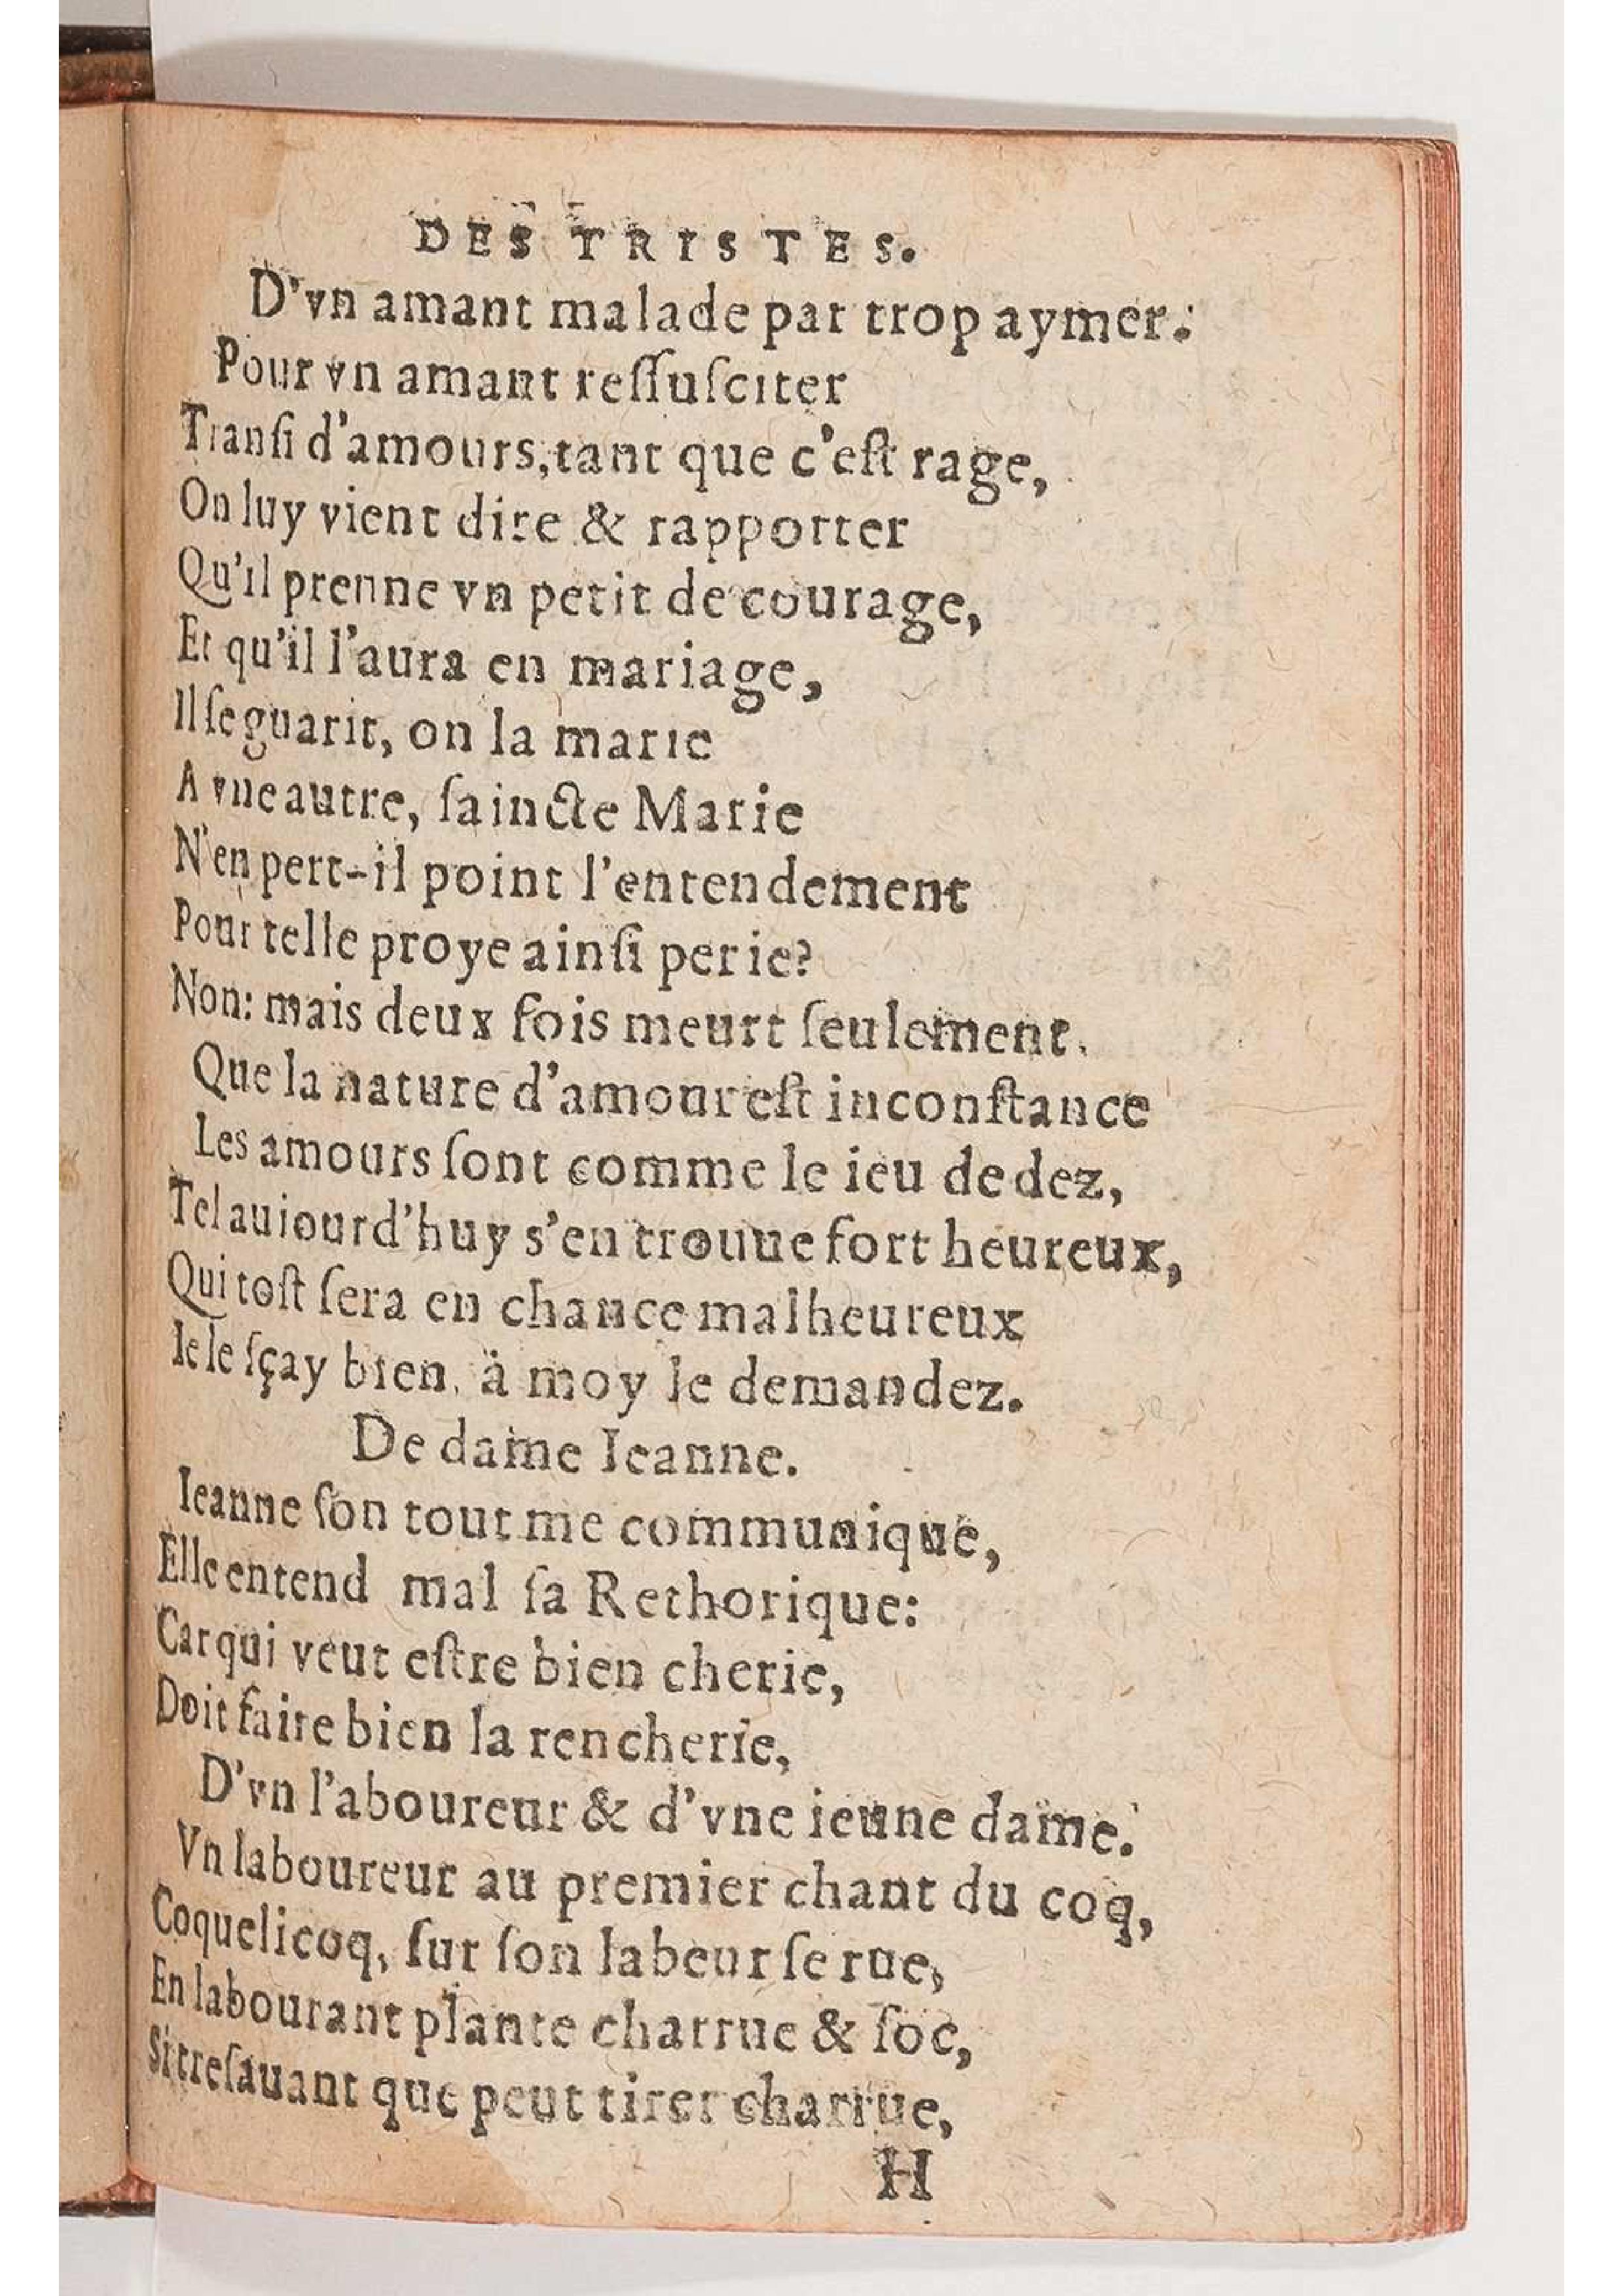 DES TRISTES.
D'vn amant malade par trop aymer.
Pour vn amant reſſuſciter
Tranſi d'amours, tant que c'eſt rage,
On luy vient dire & rapporter
Qu'il prenne vn petit de courage,
Et qu'il l'aura en mariage,
Il ſe guarit, on la marie
A vne autre, ſaincte Marie
N'en pert-il point l'entendement
Pour telle proye ainſi perie?
Non: mais deux fois meurt ſeulement.
Que la nature d'amour eſt inconſtance
Les amours ſont comme le ieu de dez,
Tel auiourd'huy s'en trouue fort heureux,
Qui toſt ſera en chance malheureux
Ie le ſçay bien, à moy le demandez.
De dame Ieanne.
Ieanne ſon tout me communique,
Elle entend mal ſa Rethorique:
Car qui veut eſtre bien cherie,
Doit faire bien la rencherie,
D'vn l'aboureur & d'vne ieune dame.
Vn laboureur au premier chant du coq,
Coquelicoq, ſur ſon labeur ſe rue,
En labourant plante charrue & ſoc,
Si treſauant que peut tirer charrue,
H